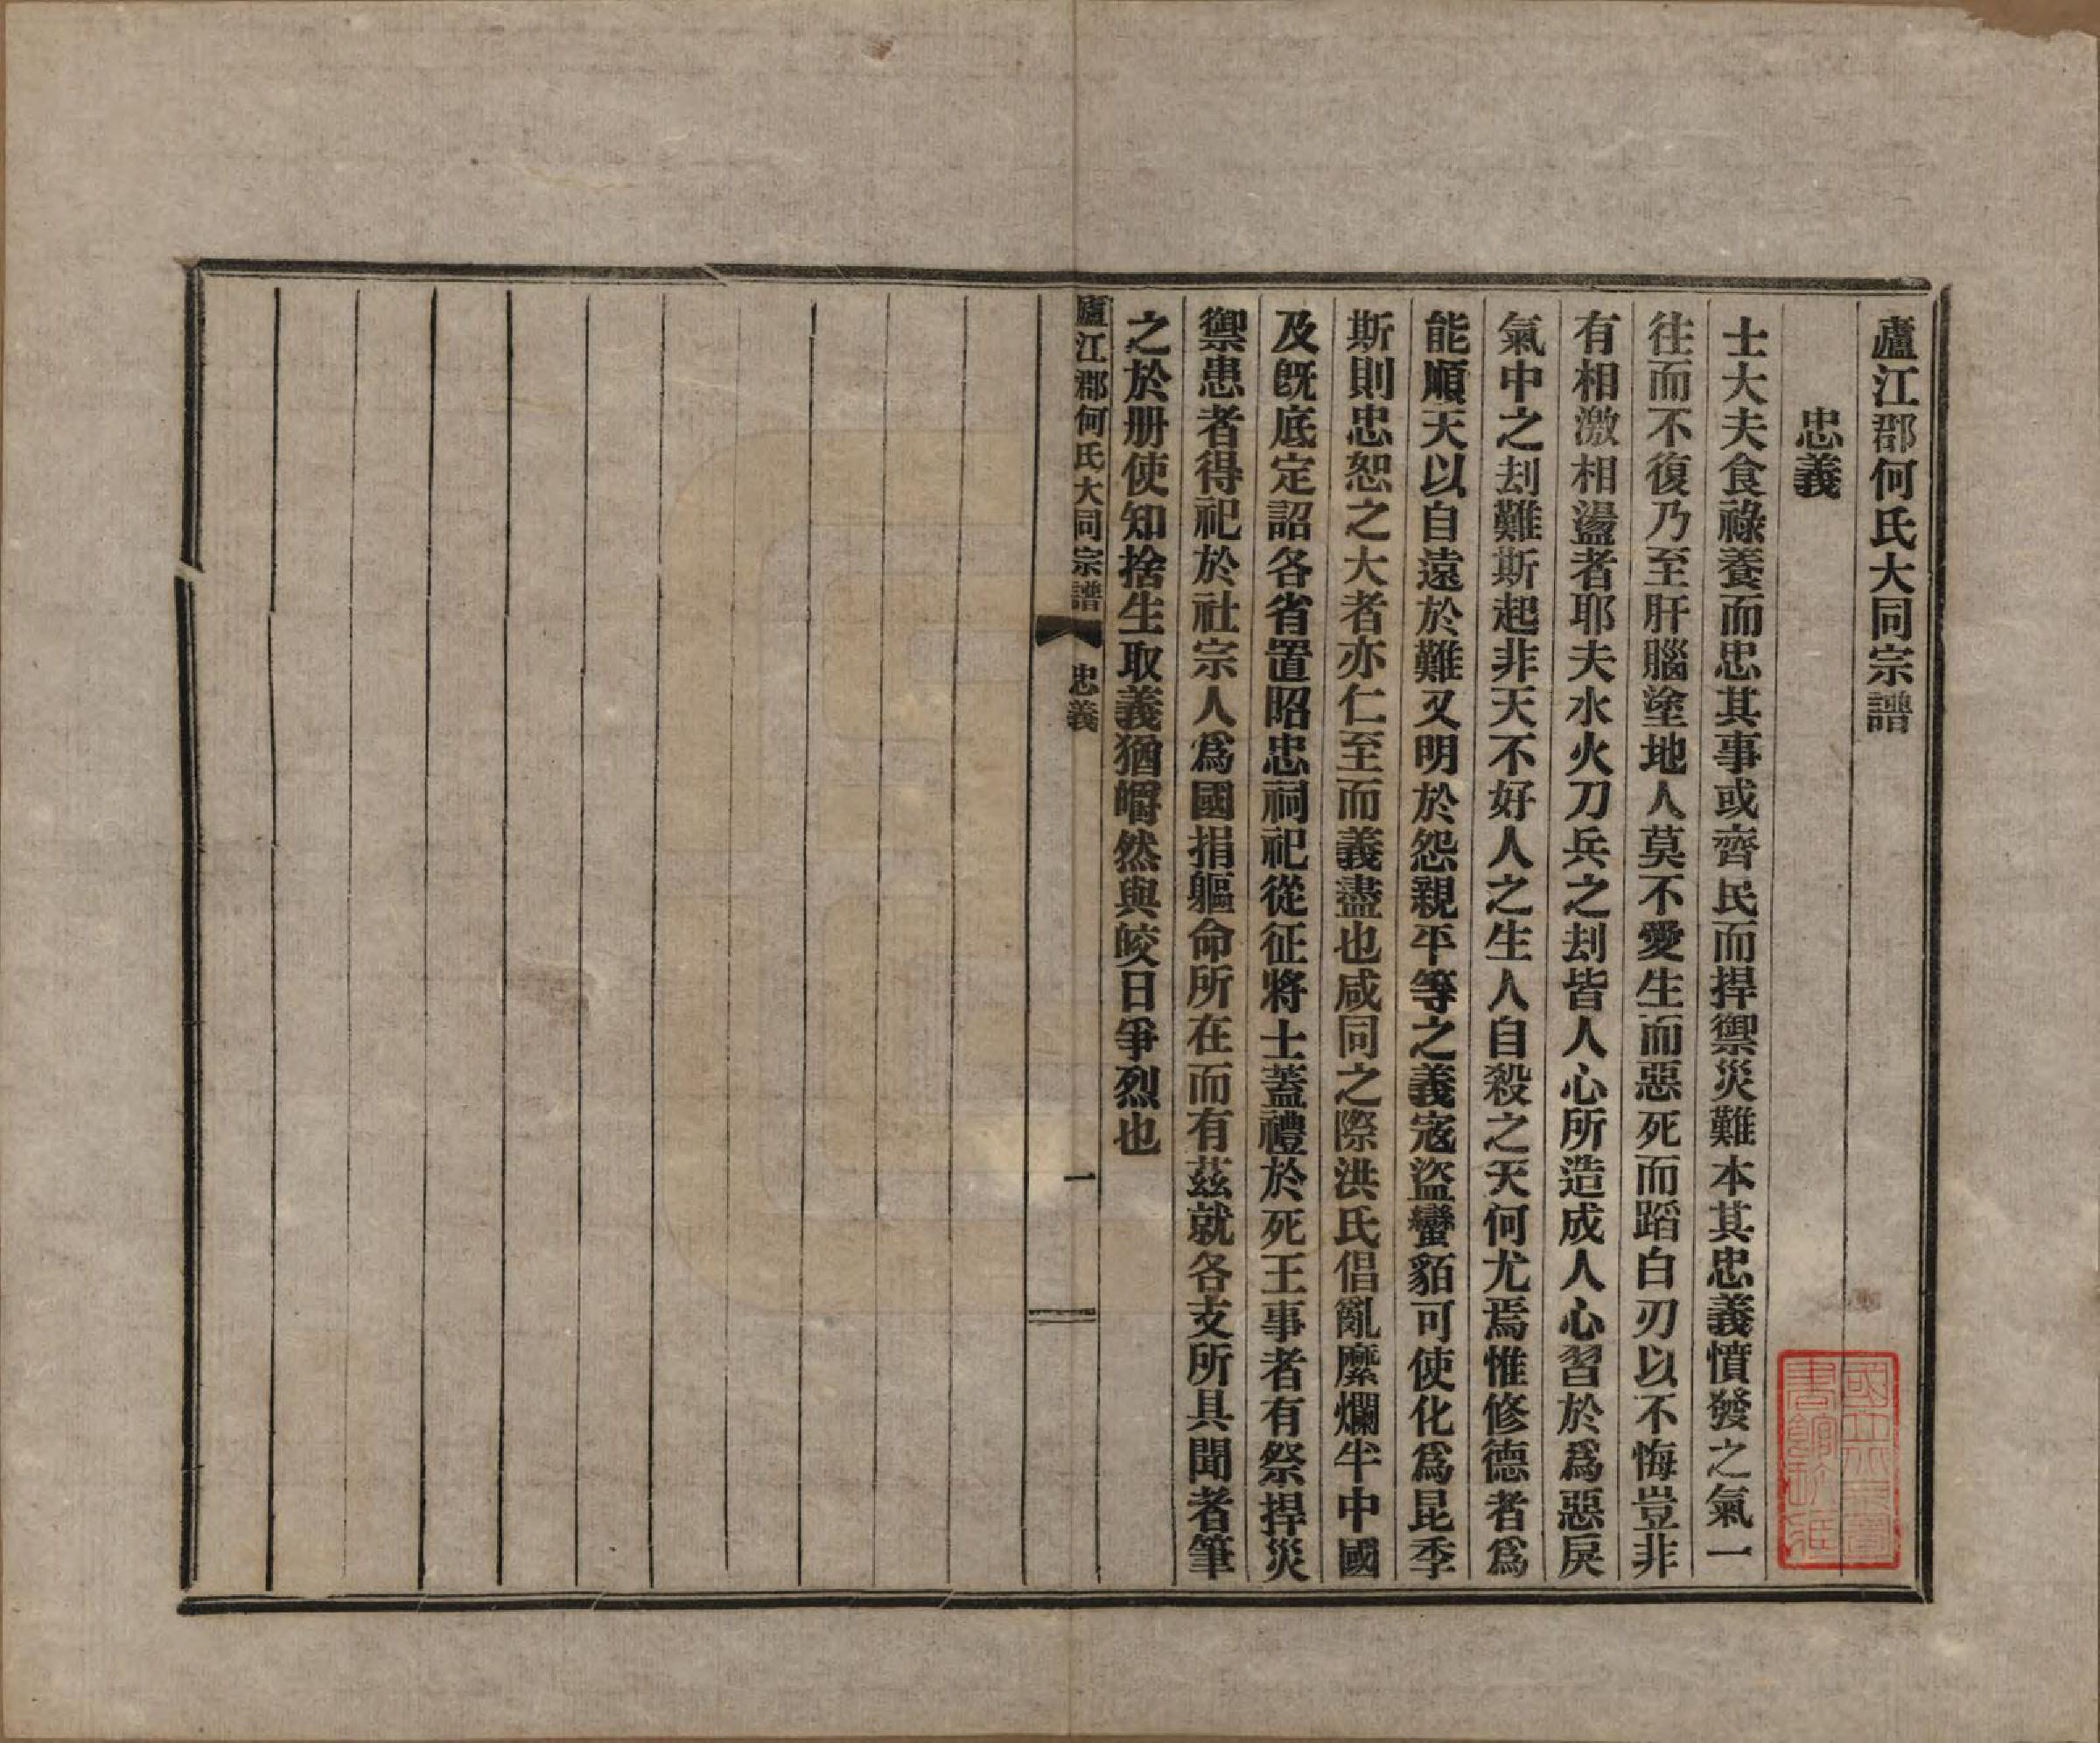 廬江郡何氏大同宗譜
忠義
士大夫食祿養而忠其事或齊民而捍禦災難本其忠義憤發之氣一
往而不復乃至肝腦塗地人莫不愛生而惡死而蹈白刃以不悔豈非
有相激相盪者耶夫水火刀兵之刦皆人心所造成人心習於爲惡戾
氣中之刦難斯起非天不好人之生人自殺之天何尤焉惟修德者爲
能順天以自遠於難又明於怨親平等之義寇盜蠻貊可使化爲昆季
斯則忠恕之大者亦仁至而義盡也咸同之際洪氏倡亂縻爛半中國
及旣底定詔各省置昭忠祠祀從征將士蓋禮於死王事者有祭捍災
禦患者得祀於社宗人爲國捐軀命所在而有茲就各支所具聞者筆
之於册使知捨生取義猶皭然與皎日爭烈也
廬江郡何氏大同宗譜
忠義
一